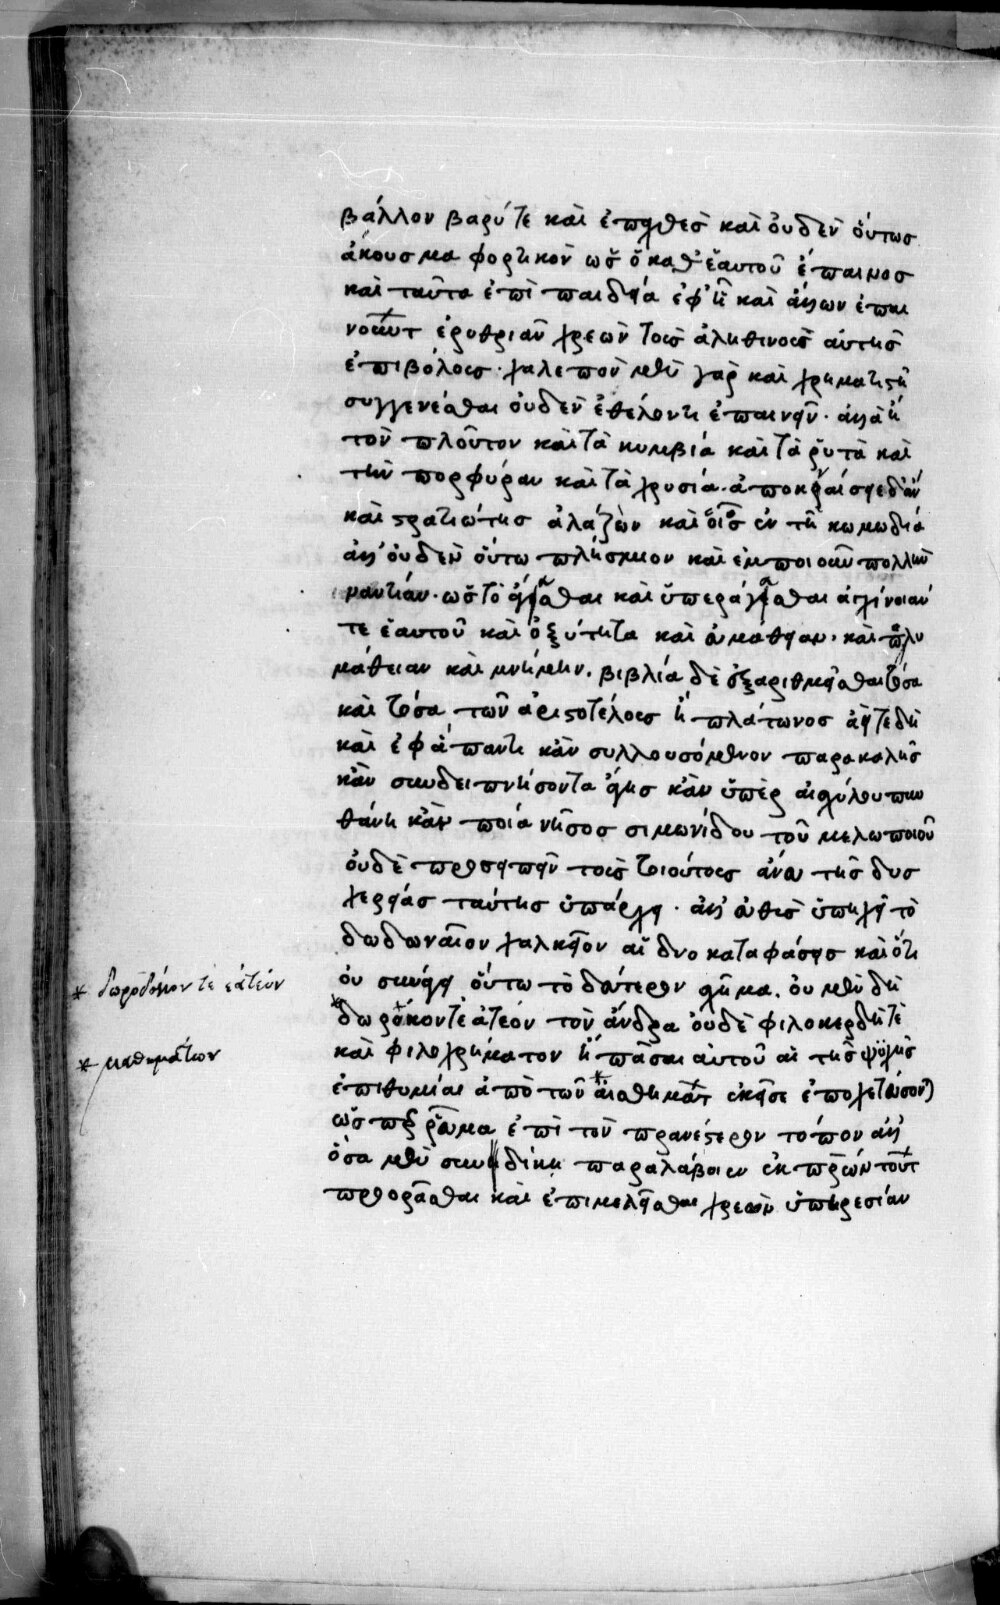 βάλλον βαρύ τε καὶ ἐπαχθὲσ καὶ οὐδὲν οὕτωσ
ἄκουσμα φορτικὸν ὡσ ὁ καθ' ἑαυτοῦ ἔπαινοσ
καὶ ταῦτα ἐπὶ παιδεία ἐφ' ἧ καὶ ἄλλων ἐπαι
νούντ ἐρυθριᾶν χρεὼν τοῖσ ἀληθινοῖσ αὐτῆσ
ἐπιβόλοισ· χαλεπὸν μὲν γὰρ καὶ χρηματιστῆ
συγγενέσθαι οὐδὲν ἐθέλοντι ἐπαινεῖν· ἀλλὰ ἢ
τὸν πλοῦτον καὶ τὰ κυμβία καὶ τὰ ῥυτὰ καὶ
τὴν πορφύραν καὶ τὰ χρυσία·
καὶ στρατιώτησ ἀλαζὼν καὶ οἷοσ ἐν τῆ κωμωδία
ἀλλ' οὐδὲν οὕτω πλήσμιον καὶ ἐμποιοῦν πολλὴν
ναυτίαν· ὡσ τὸ ἄγασθαι καὶ ὑπεράγασθαι ἀγχίνοιαν
τε ἑαυτοῦ καὶ ὀξύτητα καὶ εὐμάθειαν· καὶ πολυ
μάθειαν καὶ μνήμην. βιβλία δὲ ἐξαριθμεῖσθαι τόσα
καὶ τόσα τῶν ἀριστοτέλουσ ἢ πλάτωνοσ ἀεί τε δὴ
καὶ ἐφάπαντι κἂν συλλουσόμενον παρακαλῆσ
κἂν συνδειπνήσοντα ἄγησ κἂν ὑπὲρ αἰσχύλου πυν
θάνη κἂν ποία νῆσοσ σιμωνίδου τοῦ μελωποιοῦ
οὐδὲ προσειπεῖν τοῖσ τοιούτοισ ἄνευ τῆσ δυσ
χερείασ ταύτησ ὑπάρχει· ἀλλ' εὐθὺσ ὑπηχεῖ τὸ
δωδωναῖον χαλκεῖον αἱ δύο καταφάσεισ καὶ ὅτι
οὐ συνάγει οὕτω τὸ δεύτερον σχῆμα. οὐ μὲν δὴ
*δωρόκοντέ ἀτεόν τὸν ἄνδρα οὐδὲ φιλοκερδῆ τε
καὶ φιλοχρήματον ἢ πᾶσαι αὐτοῦ αἱ τῆσ ψυχῆσ
ἐπιθυμίαι ἀπὸ τῶν *αἰσθημάτ ἐκεῖσε ἐποχετεύσον)
ὥσπερ ῥεῦμα ἐπὶ τὸν πρανέστερον τόπον ἀλλ'
ὅσα μὲν συν δίκη παραλάβοιεν ἐκ πρῶν τούτ
προορᾶσθαι καὶ ἐπιμελεῖσθαι χρεὼν ὑπηρεσίαν
* δωροδόκον τὲ ἐατέον
* μαθημάτων